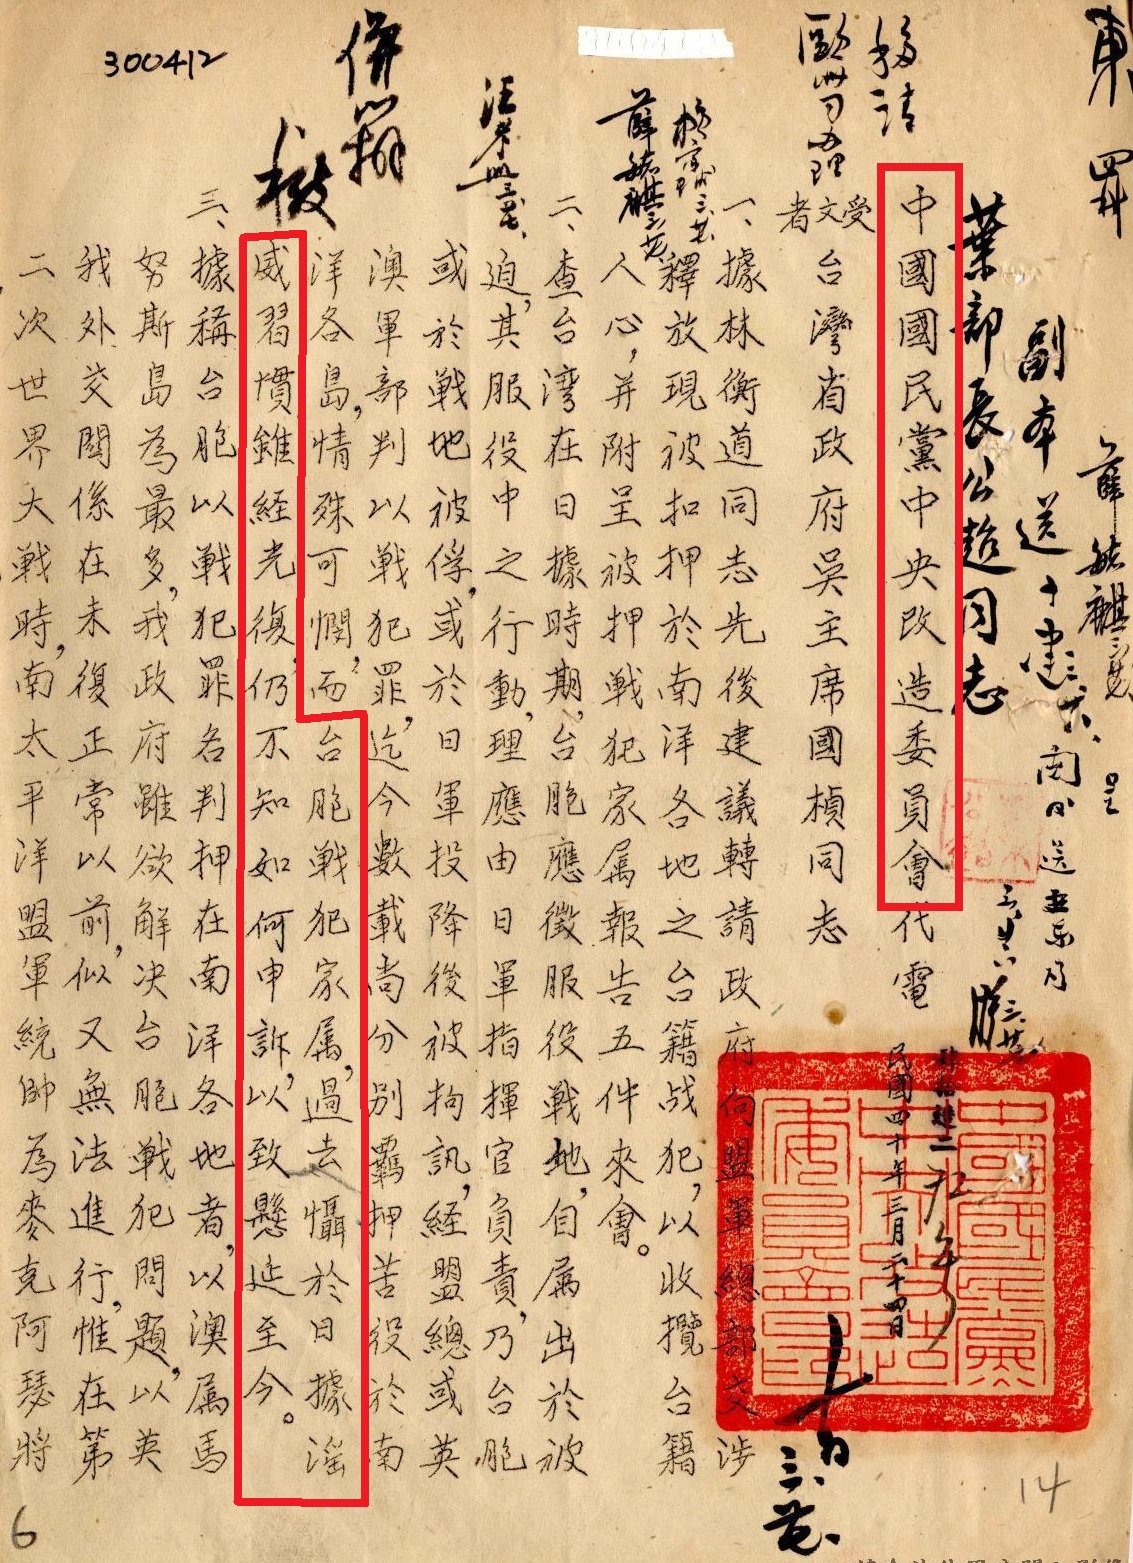 東
四科
薛毓麒
副本送
葉部長公超同志
移請
歐洲司办理
中國國民黨中央改造委員會代電
民國四十年三月二十四日
受文者 台灣省政府吳主席國楨同志
一、據林衡道同志先後建議轉請政府向盟軍總部交涉
釋放現被扣押於南洋各地之台籍战犯，以收攬台籍
人心，并附呈被押戰犯家属報告五件來會。
二、查台湾在日據時期，台胞應徵服役戰地，自属出於被
迫，其服役中之行動，理應由日軍指揮官負責，乃台胞
或於戰地被俘，或於日軍投降後被拘訊，經盟總或英
澳軍部判以戰犯罪，迄今數載尚分別羈押苦役於南
洋各島，情殊可憫，而台胞戰犯家属，過去懾於日據淫
威習慣雖経光復，仍不知如何申訴，以致懸延至今。
三、據稱台胞以戰犯罪名判押在南洋各地者，以澳属馬
努斯島為最多，我政府雖欲解决台胞戰犯問題，以英
我外交関係在未復正常以前，似又無法進行，惟在第
二次世界大戰時，南太平洋盟軍統帥為麥克阿瑟將
薛毓麒
汪孝熙
併辦
300412
14
6